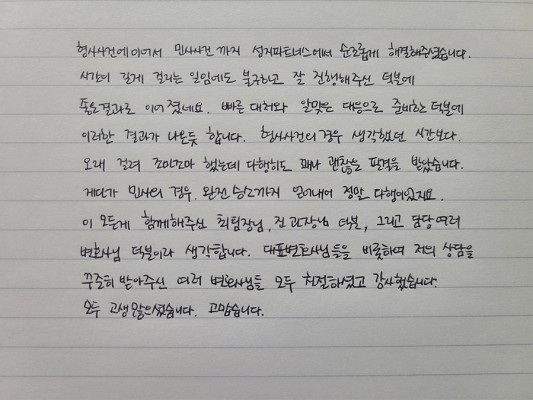 형사사건에 이어서 민사사건까지 성지파트너스에서 순조롭게 해결해주셨습니다.
시간이 길게 걸리는 일임에도 불구하고 잘 진행해주신 덕분에
좋은결과로 이어졌네요. 빠른 대처와 알맞은 대응으로 준비한 덕분에
이러한 결과가 나온듯 합니다. 형사사건의 경우 생각했던 시간보다.
오래 걸려 조마조마 했는데 다행히도 꽤나 괜찮은 판결을 받았습니다.
게다가 민사의 경우, 완전 승소까지 얻어내어 정말 다행이었지요.
이 모든게 함께해주신 최팀장님, 진과장님 덕분, 그리고 담당 여러
변호사님 덕분이라 생각합니다. 대표변호사님들을 비롯하여 저의 상담을
꾸준히 받아주신 여러 변호사님들 모두 친절하셨고 감사했습니다.
모두 고생많으셨습니다. 고맙습니다.